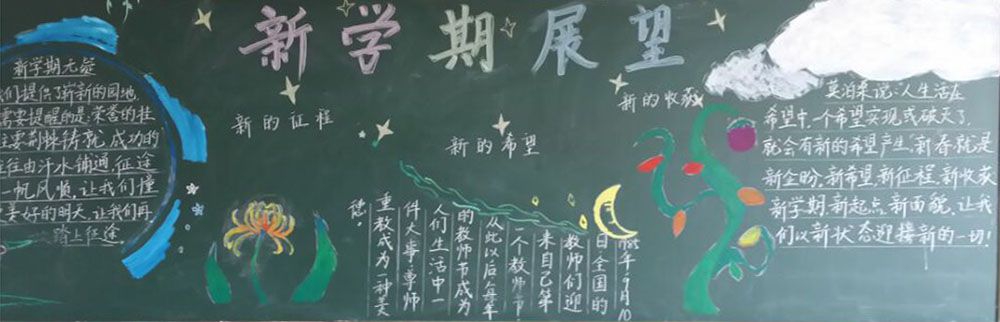 新学期展望
新学期
们提供了崭新的园地,
需要提醒的是,荣誉的桂
要荆棘铸就,成功的
往由汗水铺通,征途
一帆风顺,让我们撞
美好的明天,让我们再
踏上征途。
新的征程
新的希望
新的收获
年9月10
日全国的
教师们迎
来自己第
一个教师节
从此以后每年
的教师节成为
人们生活中一
件大事,尊师
重教成为一种美
德。
莫泊桑说:人生活在
希望中,一个希望实现或破灭了,
就会有新的希望产生,新春就是
新企盼,新希望,新征程,新收获
新学期,新起点,新面貌,让我
们以新状态迎接新的一切!